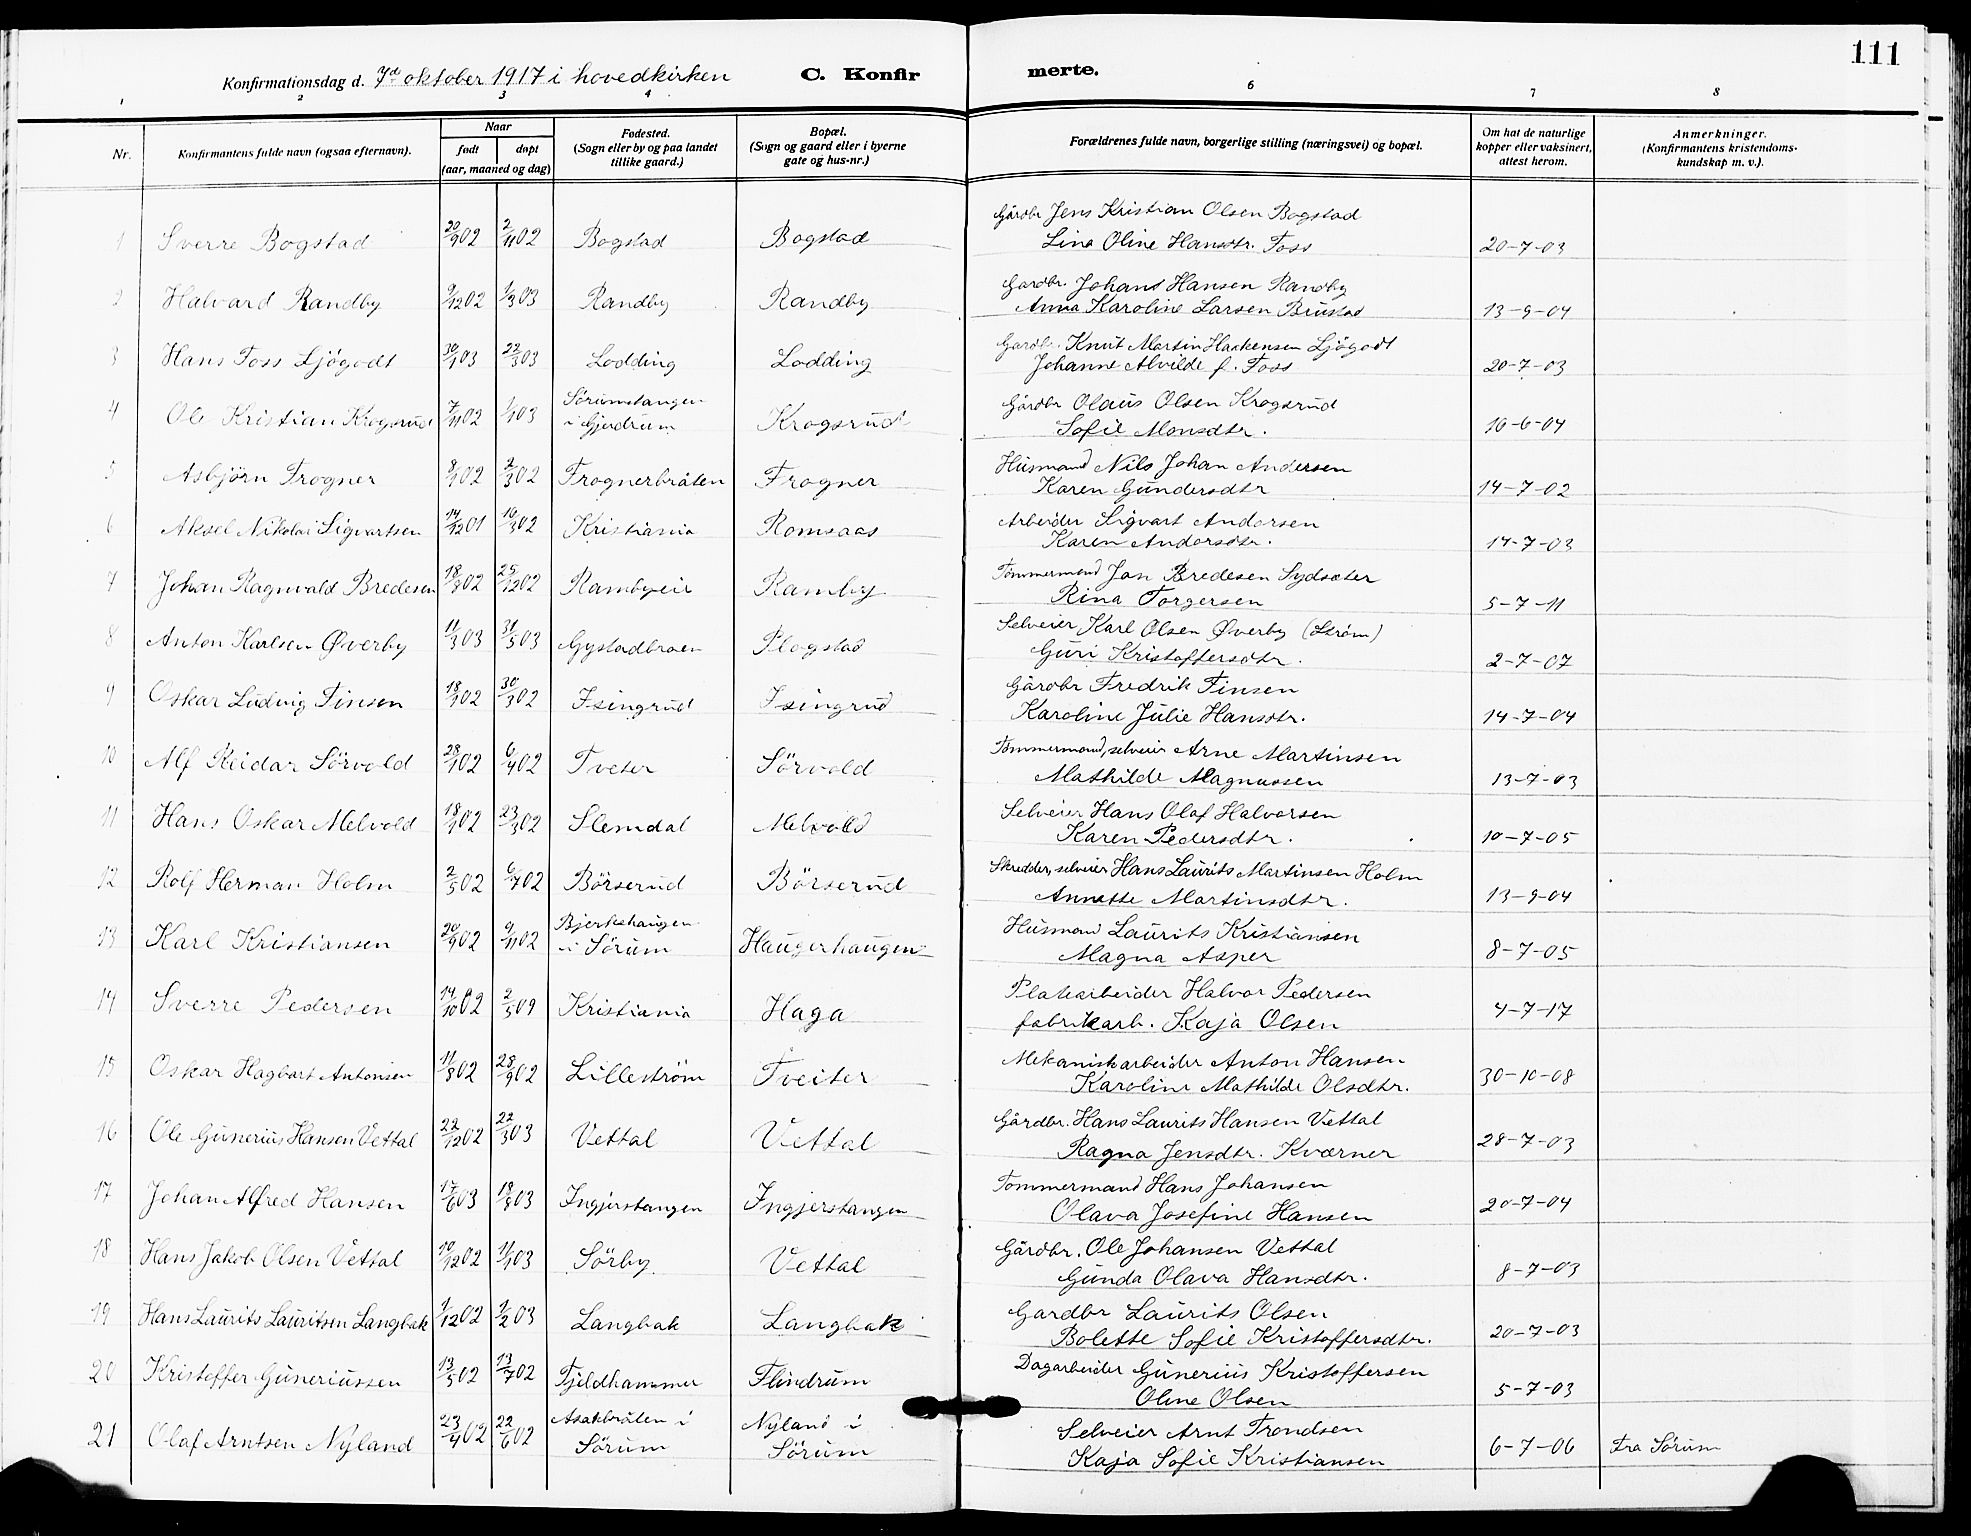 111
Konfirmationsdag d. 7de oktober 1917 i hovedkirken C. Konfirmerte.
1 2 3 4 6 7 8
Nr. Konfirmantens fulde navn (ogsaa efternavn). Naar født døpt (aar, maaned og dag) Fødested. (Sogn eller by og paa landet tillike gaard.) Bopæl. (Sogn og gaard eller i byerne gate og hus-nr.) Forældrenes fulde navn, borgerlige stilling (næringsvei) og bopæl. Om hat de naturlige kopper eller vaksinert, attest herom. Anmerkninger. (Konfirmantens kristendoms-kundskap m. v.).
1 Sverre Bogstad 20/9 02 2/11 02 Bogstad Bogstad Gårdbr Jens Kristian Olsen Bogstad
Lina Oline Hansdtr. Foss 20-7-03
2 Halvard Randby 9/12 02 1/3 03 Randby Randby Gardbr. Johans Hansen Randby
Anna Karoline Larsen Brustad 13-9-04
3 Hans Foss Ljögodt 30/1 03 22/3 03 Lodding Lodding Gardbr. Knut Martin Haakensen Ljögodt
Johanne Alvilde f. Foss 20-7-03
4 Ole Kristian Krogsrud 7/11 02 1/1 03 Sörumstangen i Gjerdrum Krogsrud Gårdbr Olaus Olsen Krogsrud
Sofie Monsdtr. 16-6-04
5 Asbjörn Frogner 8/1 02 2/3 02 Frognerbråten Frogner Husmand Nils Johan Andersen
Karen Gundersdtr 14-7-02
6 Aksel Nikolai Sigvartsen 14/12 01 16/3 02 Kristiania Romsaas Arbeider Sigvart Andersen
Karen Andersdtr. 17-7-03
7 Johan Ragnvald Bredesen 18/8 02 25/12 02 Rambyeie Ramby Tømmermand Jon Bredesen Sydsæter
Rina Torgersen 5-7-11
8 Anton Karlsen Øverby 11/3 03 31/5 03 Gystadbraten Plogstad Selveier Karl Olsen Øverby (Strøm)
Guri Kristoffersdtr. 2-7-07
9 Oskar Ludvig Finsen 18/1 02 30/3 02 Isingrud Isingrud Gårdbr Fredrik Finsen
Karoline Julie Hansdtr. 14-7-04
10 Alf Reidar Sörvold 28/1 02 6/4 02 Tveter Sörvold Tømmermand, selveier Arne Martinsen
Mathilde Magnussen 13-7-03
11 Hans Oskar Melvold 18/1 02 23/3 02 Slemdal Melvold Selveier Hans Olaf Halvorsen
Karen Pedersdtr. 10-7-05
12 Rolf Herman Holm 2/5 02 6/7 02 Börserud Börserud Skredder, selveier Hans Laurits Martinsen Holm
Annette Martinsdtr. 13-9-04
13 Karl Kristiansen 20/9 02 9/11 02 Bjerkehaugen i Sörum Haugerhaugen Husmand Laurits Kristiansen
Magna Asper 8-7-05
14 Sverre Pedersen 14/10 02 2/5 09 Kristiania Haga Platearbeider Halvor Pedersen
fabrikarb. Kaja Olsen 4-7-17
15 Oskar Hagbart Antonsen 11/8 02 28/9 02 Lilleström Tveiter Mekaniskarbeider Anton Hansen
Karoline Mathilde Olsdtr. 30-10-08
16 Ole Gunerius Hansen Vettal 22/12 02 22/3 03 Vettal Vettal Gårdbr. Hans Laurits Hansen Vettal
Ragna Jensdtr. Kværner 28-7-03
17 Johan Alfred Hansen 17/6 03 18/8 03 Ingjerstangen Ingjerstangen Tømmermand Hans Johansen
Olava Josefine Hansen 20-7-04
18 Hans Jakob Olsen Vettal 10/12 02 11/1 03 Sörby Vettal Gårdbr. Ole Johansen Vettal
Gunda Olava Hansdtr. 8-7-03
19 Hans Laurits Lauritsen Langbak 7/12 02 1/2 03 Langbak Langbak Gardbr Laurits Olsen
Bolette Sofie Kristoffersdtr. 20-7-03
20 Kristoffer Guneriussen 13/5 02 13/7 02 Fjeldhammer Flindrum Dagarbeider Gunerius Kristoffersen
Oline Olsen 5-7-03
21 Olaf Arntsen Nyland 23/4 02 22/6 02 Asakbråten i Sörum Nyland i Sörum Selveier Arnt Trondsen
Kaja Sofie Kristiansen 6-7-06 Fra Sörum